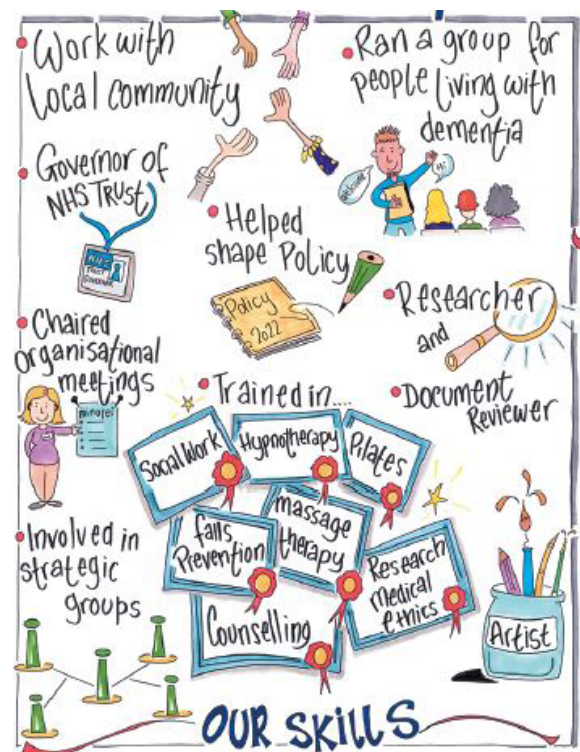 Work with
local community
Ran a group for
people living with
dementia
welcome
Hi
Governor of
NHS Trust
NHS
TRUST
GOVERNOR
Helped
shape Policy
Policy
2022
Researcher
and
Document
Reviewer
Chaired
organisational
meetings
minutes
Trained in....
Social Work
Hypnotherapy
Pilates
falls
Prevention
massage
therapy
Research
Medical
ethics
Counselling
Involved in
strategic
groups
Artist
OUR SKILLS